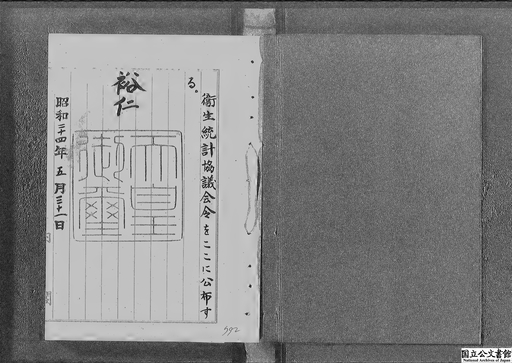 衛生統計協議会令をここに公布す
る。
裕仁
天皇
御璽
昭和二十四年五月三十一日
592
国立公文書館
National Archives of Japan